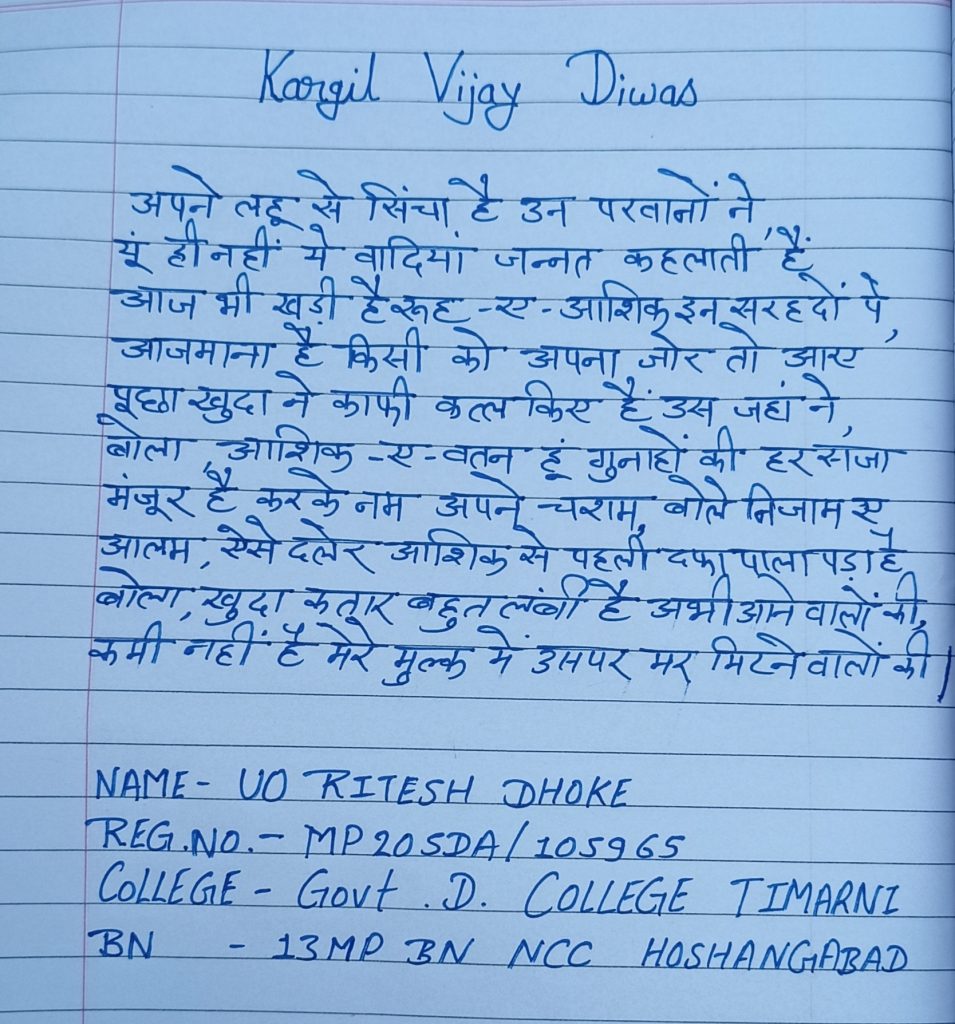 Kargil Vijay Diwas
अपने लहू से सिंचा है उन परवानों ने,
यूं ही नहीं ये वादियां जन्नत कहलाती हैं,
आज भी खड़ी है रूह-ए-आशिक इन सरहदों पे,
आजमाना है किसी को अपना जोर तो आए
पूछा खुदा ने काफी कत्ल किए हैं उस जहां ने,
बोला, आशिक-ए-वतन हूं गुनाहों की हर सजा
मंजूर है करके नम अपने चशम, बोले निजाम ए
आलम, ऐसे दलेर आशिक से पहली दफा पाला पड़ा है
बोला, खुदा कतार बहुत लंबी है अभी आने वालों की,
कमी नहीं है मेरे मुल्क में उसपर मर मिटने वालों की।
NAME- UO RITESH DHOKE
REG.NO.- MP20SDA/105965
COLLEGE - Govt. D. COLLEGE TIMARNI
BN - 13MP BN NCC HOSHANGABAD